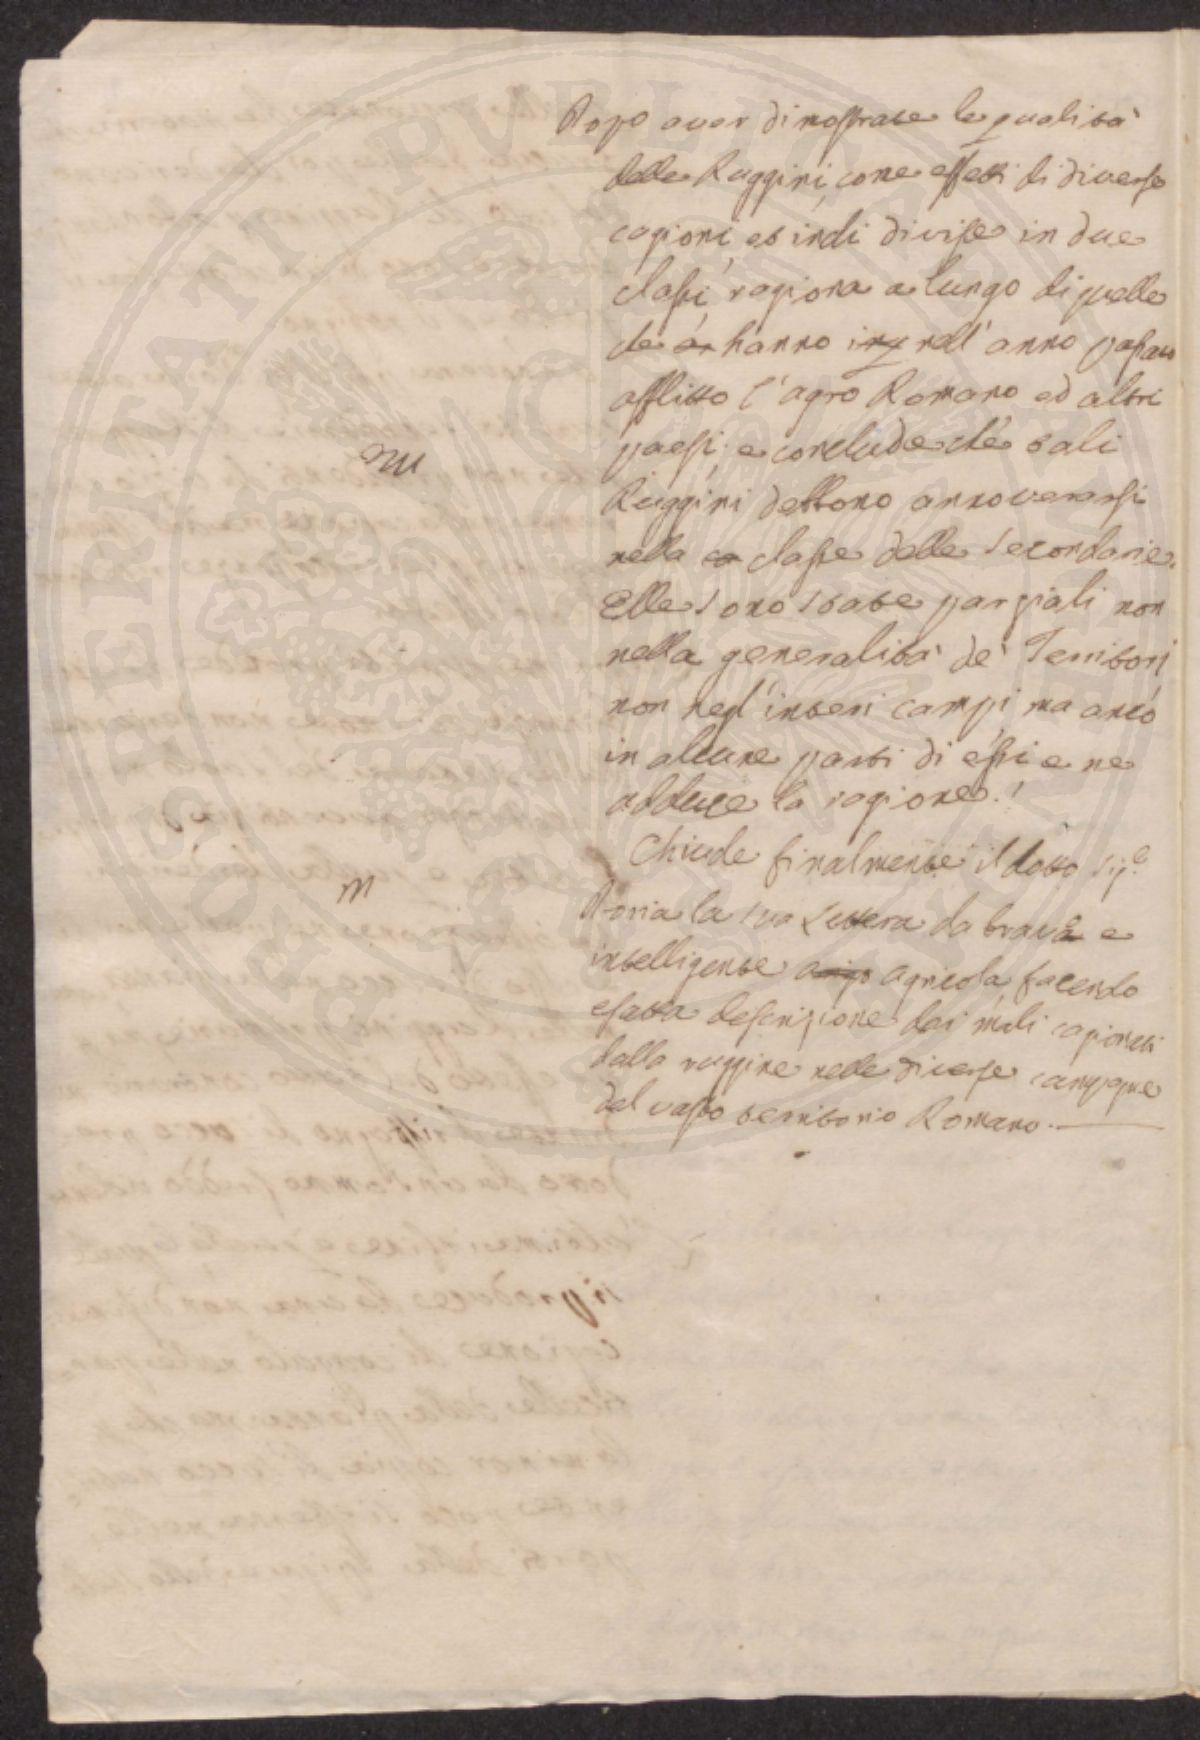 Dopo aver dimostrate le qualità
delle Ruggini, come effetti di diverse
cagioni, et indi divise in due
classi, ragiona a lungo di quelle
che an hanno ing nell' anno passato
afflitto l'agro Romano ed altri
paesi; e conclude chè tali
Ruggini debbono annoverarsi
nella ca classe delle Secondarie.
Elle sono state parziali non
nella generalità de' Territorj
non negl'interi campi ma ancò
in alcune parti di essi e ne
adduce la ragione.
Chiude finalmente il dotto Sig.e
Doria la sua Lettera da bravo e
intelligente agricola, facendo
esatta descrizione dei mali cagionati
dalla ruggine nelle diverse campagne
del vasto territorio Romano.
PROSPERITATI PVBLICAE